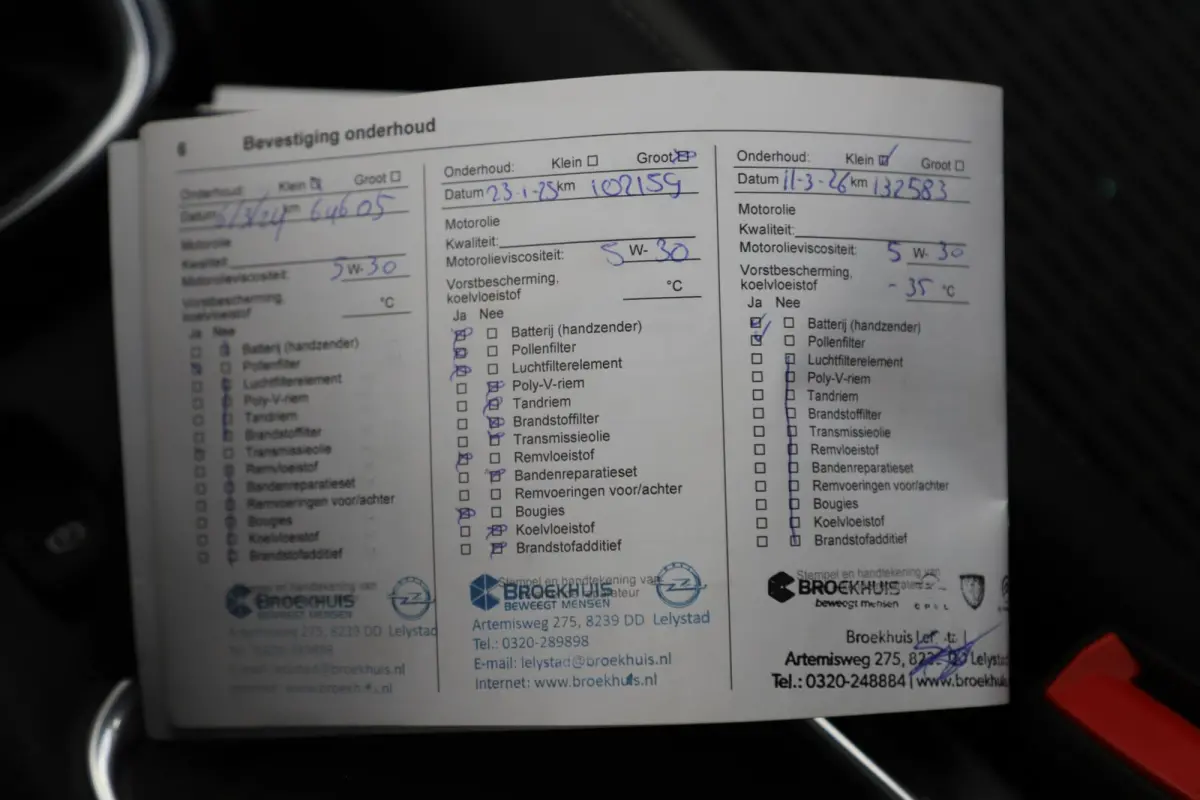 6 Bevestiging onderhoud
Onderhoud: Klein Groot
Datum km 64605
Motorolie
Kwaliteit:
Motorolieviscositeit: 5 W- 30
Vorstbescherming,
koelvloeistof °C
Ja Nee
Batterij (handzender)
Pollenfilter
Luchtfilterelement
Poly-V-riem
Tandriem
Brandstoffilter
Transmissieolie
Remvloeistof
Bandenreparatieset
Remvoeringen voor/achter
Bougies
Koelvloeistof
Brandstofadditief
Stempel en handtekening van
BROEKHUIS
BEWEEGT MENSEN
Artemisweg 275, 8239 DD Lelystad
Onderhoud: Klein Groot
Datum 23-1-25 km 102159
Motorolie
Kwaliteit:
Motorolieviscositeit: 5 W- 30
Vorstbescherming,
koelvloeistof °C
Ja Nee
Batterij (handzender)
Pollenfilter
Luchtfilterelement
Poly-V-riem
Tandriem
Brandstoffilter
Transmissieolie
Remvloeistof
Bandenreparatieset
Remvoeringen voor/achter
Bougies
Koelvloeistof
Brandstofadditief
Stempel en handtekening van
BROEKHUIS
BEWEEGT MENSEN
Artemisweg 275, 8239 DD Lelystad
Tel.: 0320-289898
E-mail: lelystad@broekhuis.nl
Internet: www.broekhuis.nl
Onderhoud: Klein Groot
Datum 11-3-26 km 132583
Motorolie
Kwaliteit:
Motorolieviscositeit: 5 W- 30
Vorstbescherming,
koelvloeistof - 35 °C
Ja Nee
Batterij (handzender)
Pollenfilter
Luchtfilterelement
Poly-V-riem
Tandriem
Brandstoffilter
Transmissieolie
Remvloeistof
Bandenreparatieset
Remvoeringen voor/achter
Bougies
Koelvloeistof
Brandstofadditief
Stempel en handtekening van
BROEKHUIS
beweegt mensen OPEL
Broekhuis
Artemisweg 275,
Tel.: 0320-248884 | www.broekhuis